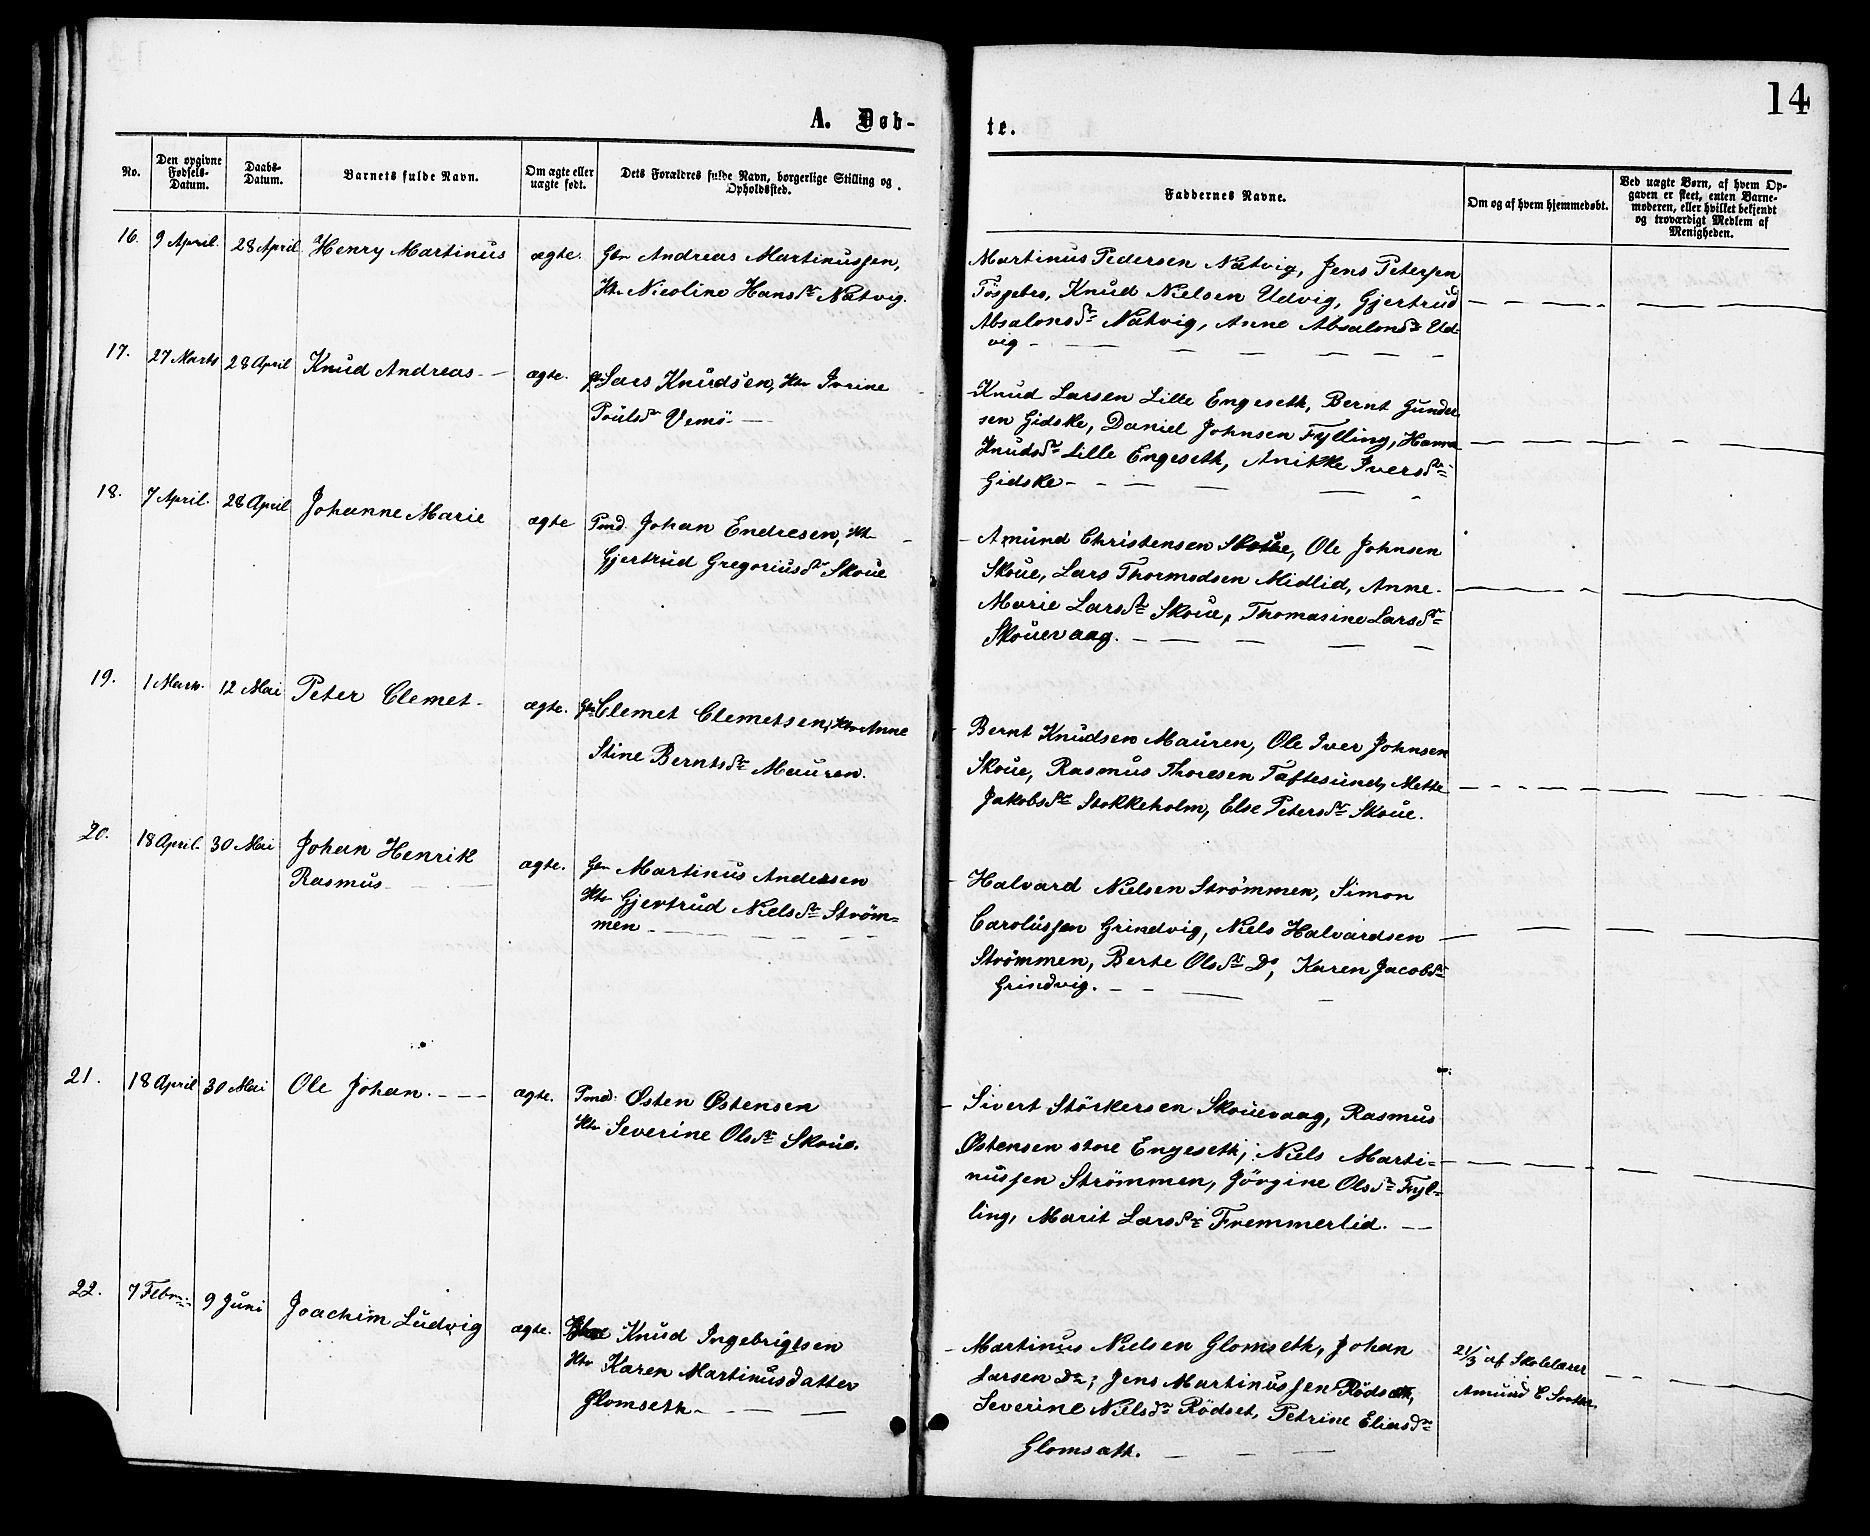 14
A. Døb-
te.
No.
Den opgivne Fødsels-Datum.
Daabs-Datum.
Barnets fulde Navn.
Om ægte eller uægte født.
Dets Forældres fulde Navn, borgerlige Stilling og Opholdssted.
Faddernes Navne.
Om og af hvem hjemmedøbt.
Ved uægte Børn, af hvem Op-
gaven er skeet, enten Barne-
moderen, eller hvilket bekjendt
og troværdigt Medlem af
Menigheden.
16. 9 April. 28 April Henry Martinus ægte. Gbr Andreas Martinussen,
Htr Nicoline Hansdr Natvig.
Martinus Pedersen Natvig, Jens Petersen
Tøssebro, Knud Nielsen Udvig, Gjertrud
Absalonsdr Natvig, Anne Absalonsdr Ud-
vig
17. 27 Marts 28 April Knud Andreas ægte. Lars Knudsen, Htr Ivrine
Poulsdr Vemø.
Knud Larsen Lille Engeseth, Bernt Gunder
sen Gidske, Daniel Johnsen Fylling, Hanna
Knudsdr Lille Engeseth, Anikke Iversdr
Gidske
18. 7 April. 28 April Johanne Marie ægte Pmd. Johan Endresen, Htr
Gjertrud Gregoriusdr Skoue
Amund Christensen Skoue, Ole Johnsen
Skoue, Lars Thormodsen Midlid, Anne
Marie Larsdr Skoue, Thomasine Larsdr
Skouevaag.
19. 1 Marts. 12 Mai Peter Clemet ægte. Gbr Clemet Clemetsen, Htr Anne
Stine Berntsdr Mauren.
Bernt Knudsen Mauren, Ole Iver Johnsen
Skoue, Rasmus Thoresen Taftesund, Mette
Jakobsdr Stokkeholm, Else Petersdr Skoue.
20. 18 April. 30 Mai Johan Henrik
Rasmus
ægte. Gbr Martinus Andersen
Htr Gjertrud Nielsdr Strøm=
men
Halvard Nielsen Strømmen, Simon
Carolussen Grindvig, Niels Halvardsen
Strømmen, Berte Olsdr Do, Karen Jacobsdr
Grindvig.
21. 18 April 30 Mai Ole Johan. ægte. Pmd. Østen Østensen
Htr Severine Olsdr Skoue.
Sivert Störkersen Skouevaag, Rasmus
Østensen store Engeseth, Niels Marti=
nussen Strømmen, Jørgine Olsdr Fyl=
ling, Marit Larsdr Fremmerlid.
22. 7 Febr. 9 Juni Joachim Ludvig ægte. Knud Ingebrigtsen
Htr Karen Martinusdatter
Glomseth
Martinus Nielsen Glomseth, Johan
Larsen Do; Jens Martinussen Rødset,
Severine Nielsdr Rødset, Petrine Eliasdr
Glomsæth.
21/3 af Skolelærer
Amund C